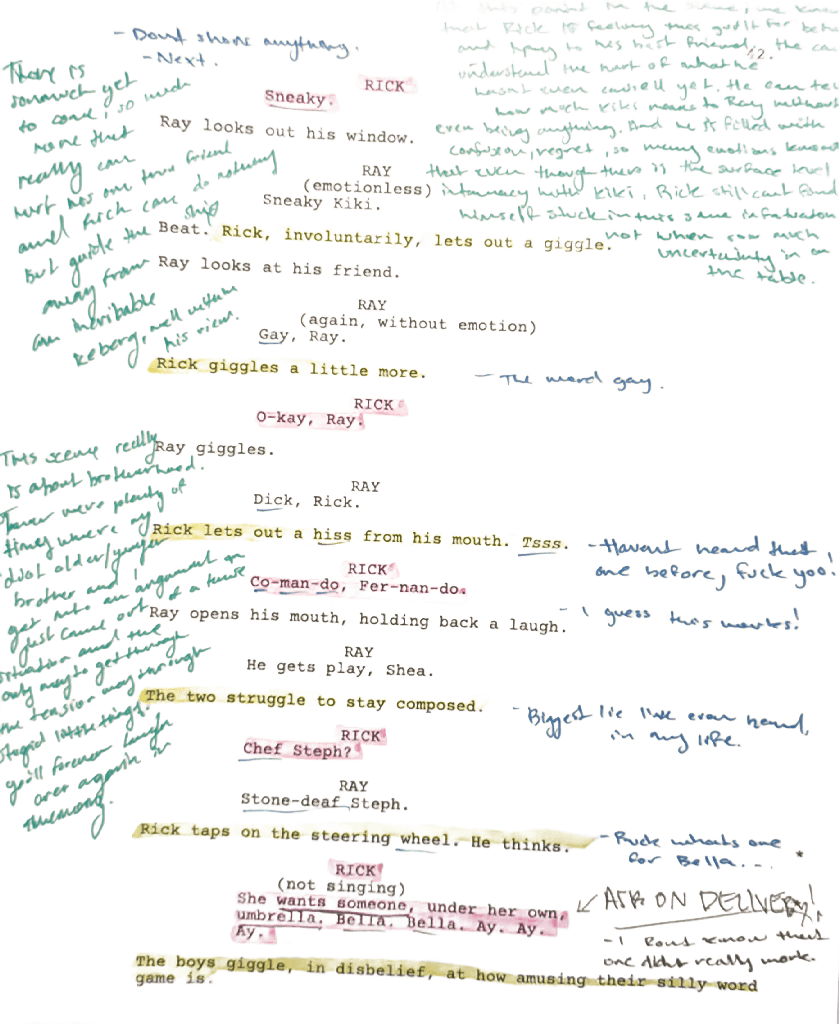 - Dont show anything.
- Next.
42.
at this point in the scene, we know
that Rick is feeling this guilt for betr
and lying to his best friend, he can
understand the hurt of what he
hasnt even caused yet. He can tell
how much Kiki means to Ray without
even being anything. And he is filled with
confusion, regret, so many emotions
that even though there is the surface level
intamacy with Kiki, Rick still cant find
himself stuck in this same infatuation
not when so much
uncertainty is on
the table.
There is
somuch yet
to come, so much
more that
really can
hurt his one true friend
and Rick can do nothing
but guide the ship
away from
an inevitable
iceberg, well within
his view.
RICK
Sneaky.
Ray looks out his window.
RAY
(emotionless)
Sneaky Kiki.
Beat. Rick, involuntarily, lets out a giggle.
Ray looks at his friend.
RAY
(again, without emotion)
Gay, Ray.
Rick giggles a little more.
- The word gay.
RICK
O-kay, Ray.
Ray giggles.
RAY
Dick, Rick.
Rick lets out a hiss from his mouth. Tsss.
- Havent heard that
one before, fuck you.
RICK
Co-man-do, Fer-nan-do.
Ray opens his mouth, holding back a laugh.
- I guess this works!
RAY
He gets play, Shea.
The two struggle to stay composed.
- Biggest lie Ive ever heard,
in my life.
This scene really
is about brotherhood.
There were plenty of
times where my
older/younger
brother and I
get into an argument or
just came out of a tense
situation and the
only way to get through
the tension was through
stupid little things
you'll forever laugh
over again in
memory.
RICK
Chef Steph?
RAY
Stone-deaf Steph.
Rick taps on the steering wheel. He thinks.
- Fuck whats one
for Bella... *
RICK
(not singing)
She wants someone, under her own,
umbrella. Bella. Bella. Ay. Ay.
Ay.
ASK ON DELIVERY!
- I dont know that
one didnt really work.
The boys giggle, in disbelief, at how amusing their silly word
game is.